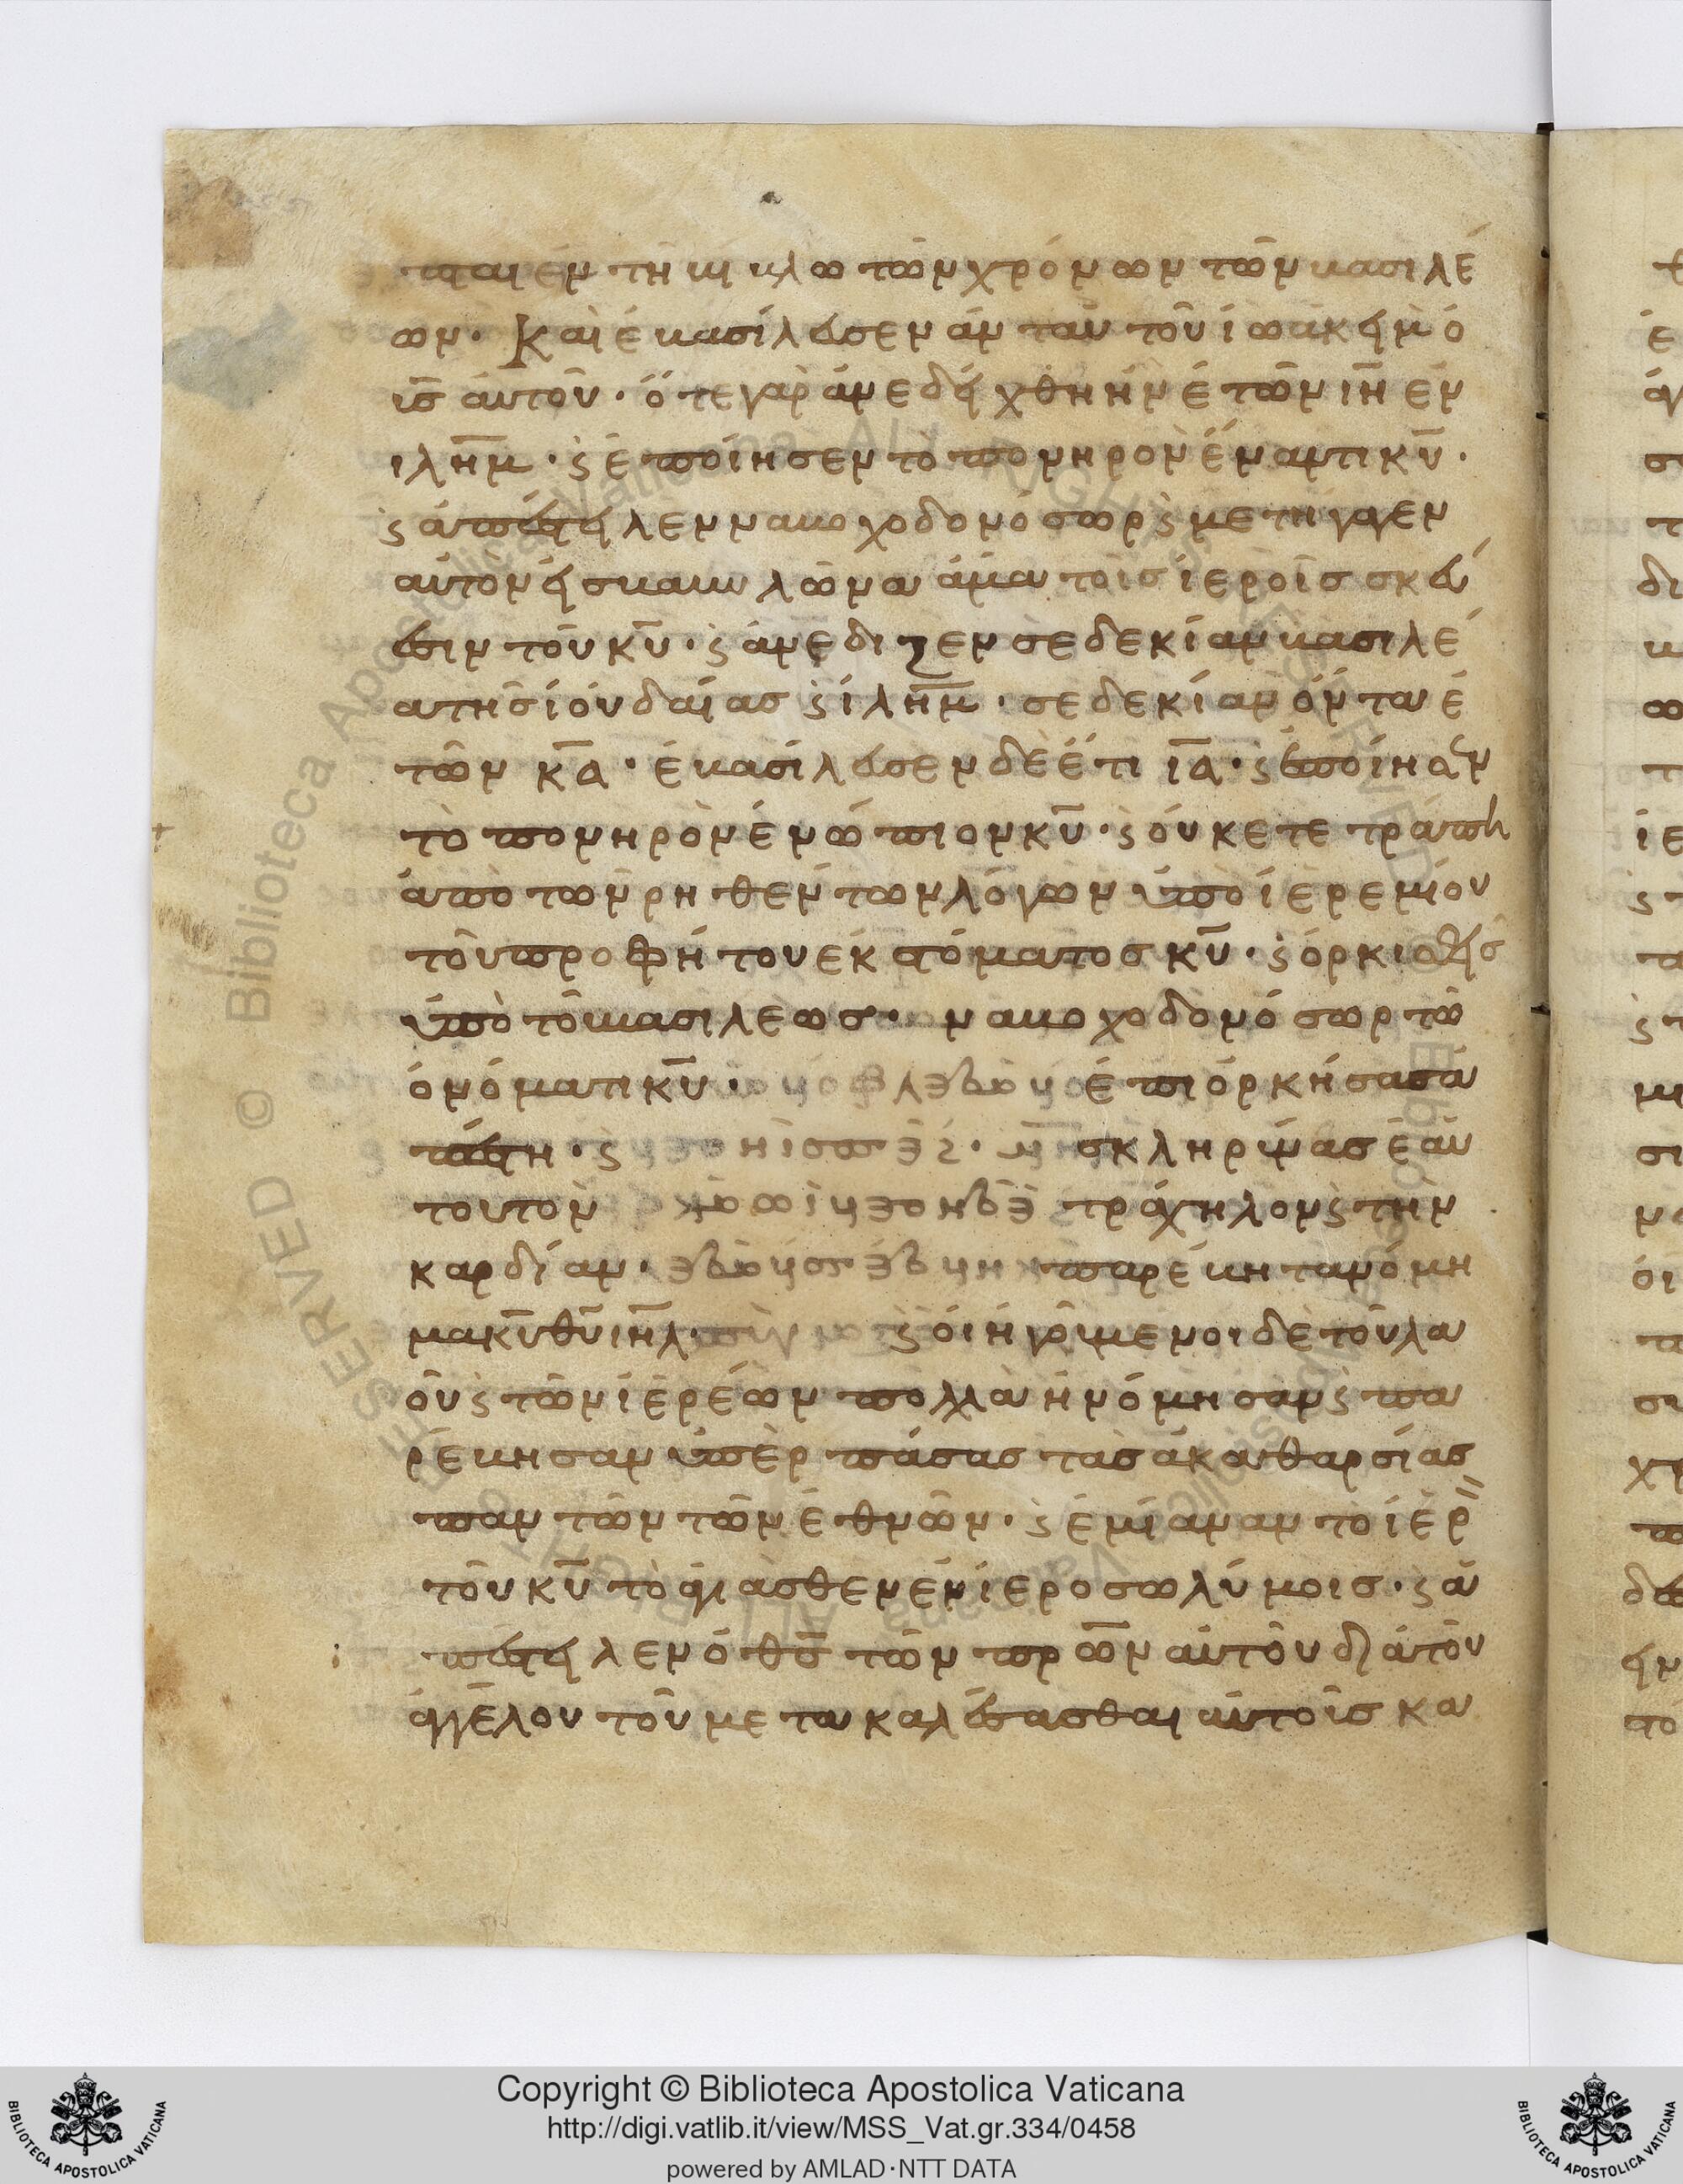 πται ἐν τῆ βίβλω τῶν χρόνων τῶν βασιλέ
ων· Καὶ ἐβασίλευσεν ἀντ αὐτοῦ ἰωακεὶμ ὁ
ῡς αὐτοῦ· ὅτε γὰρ ἀνεδείχθη ἦν ἐτῶν ιη ἐν
ιλημ· ϛ ἐποίησεν τὸ πονηρὸν ἔναντι κυ·
ϛ ἀπέστειλεν ναβουχοδονόσωρ ϛ μετήγαγεν
αὐτὸν εἰς βαβυλῶνα ἅμα τοῖς ἱεροῖς σκεύ
εσιν τοῦ κυ· ϛ ἀνέδιξεν σεδεκίαν βασιλέ
α τῆς ἰουδαίας ϛ ιλημ· σεδεκίαν ὄντα ἐ
τῶν κα· ἐβασίλευσεν δὲ ἔτι ια· ϛ ἐποίησεν
τὸ πονηρὸν ἐνώπιον κυ· ϛ οὐκ ετετράπη
ἀπὸ τῶν ρηθέντων λόγων ὑπὸ ἰερεμίου
τοῦ προφήτου ἐκ στόματος κυ· ϛ ὁρκισθεὶς
ὑπὸ τοῦ βασιλέως· ναβουχοδονόσωρ τῶ
ὀνόματι κυ· ἐπιόρκήσας ἀ
πέστη· ϛ σκληρύνας ἑαυ
τοῦ τὸν τράχηλον ϛ τὴν
καρδίαν· παρέβη τα νόμι
μα κυ θυ ιηλ· ϛ οἱ ἡγούμενοι δὲ τοῦ λα
οῦ ϛ τῶν ἱερέων πολλὰ ἠνόμησαν ϛ πα
ρέβησαν ὑπὲρ πάσας τὰς ἀκαθαρσίας
παντῶν τῶν ἐθνῶν· ϛ ἐμίαναν τὸ ἱερὸν
τοῦ κυ τὸ ἁγιασθεν ἐν ἱεροσωλύμοις· ϛ ἀ
πέστειλεν ὁ θς τῶν πρων αὐτοῦ διὰ τοῦ
ἀγγέλου τοῦ μετακαλέσασθαι αὐτοῖς κα
Copyright © Biblioteca Apostolica Vaticana
http://digi.vatlib.it/view/MSS_Vat.gr.334/0458
powered by AMLAD·NTT DATA
BIBLIOTECA APOSTOLICA VATICANA
BIBLIOTECA APOSTOLICA VATICANA